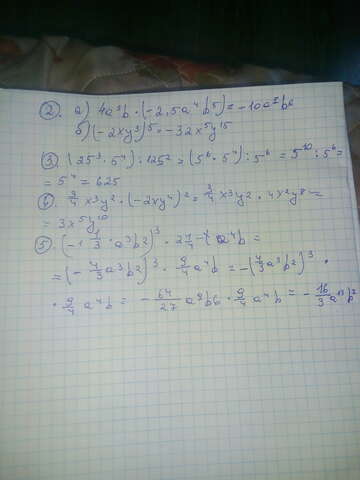 2. а) 4a³b · (-2,5a⁴b⁵) = -10a⁷b⁶
б) (-2xy³)⁵ = -32x⁵y¹⁵
3. (25³ · 5⁴) : 125² = (5⁶ · 5⁴) : 5⁶ = 5¹⁰ : 5⁶ =
= 5⁴ = 625
6. 3/4 x³y² · (-2xy⁴)² = 3/4 x³y² · 4x²y⁸ =
= 3x⁵y¹⁰
5. (-1 1/3 · a³b²)³ · 2 1/4 a⁴b =
= (- 4/3 a³b²)³ · 9/4 a⁴b = -(4/3 a³b²)³ ·
· 9/4 a⁴b = - 64/27 a⁹b⁶ · 9/4 a⁴b = - 16/3 a¹³b⁷